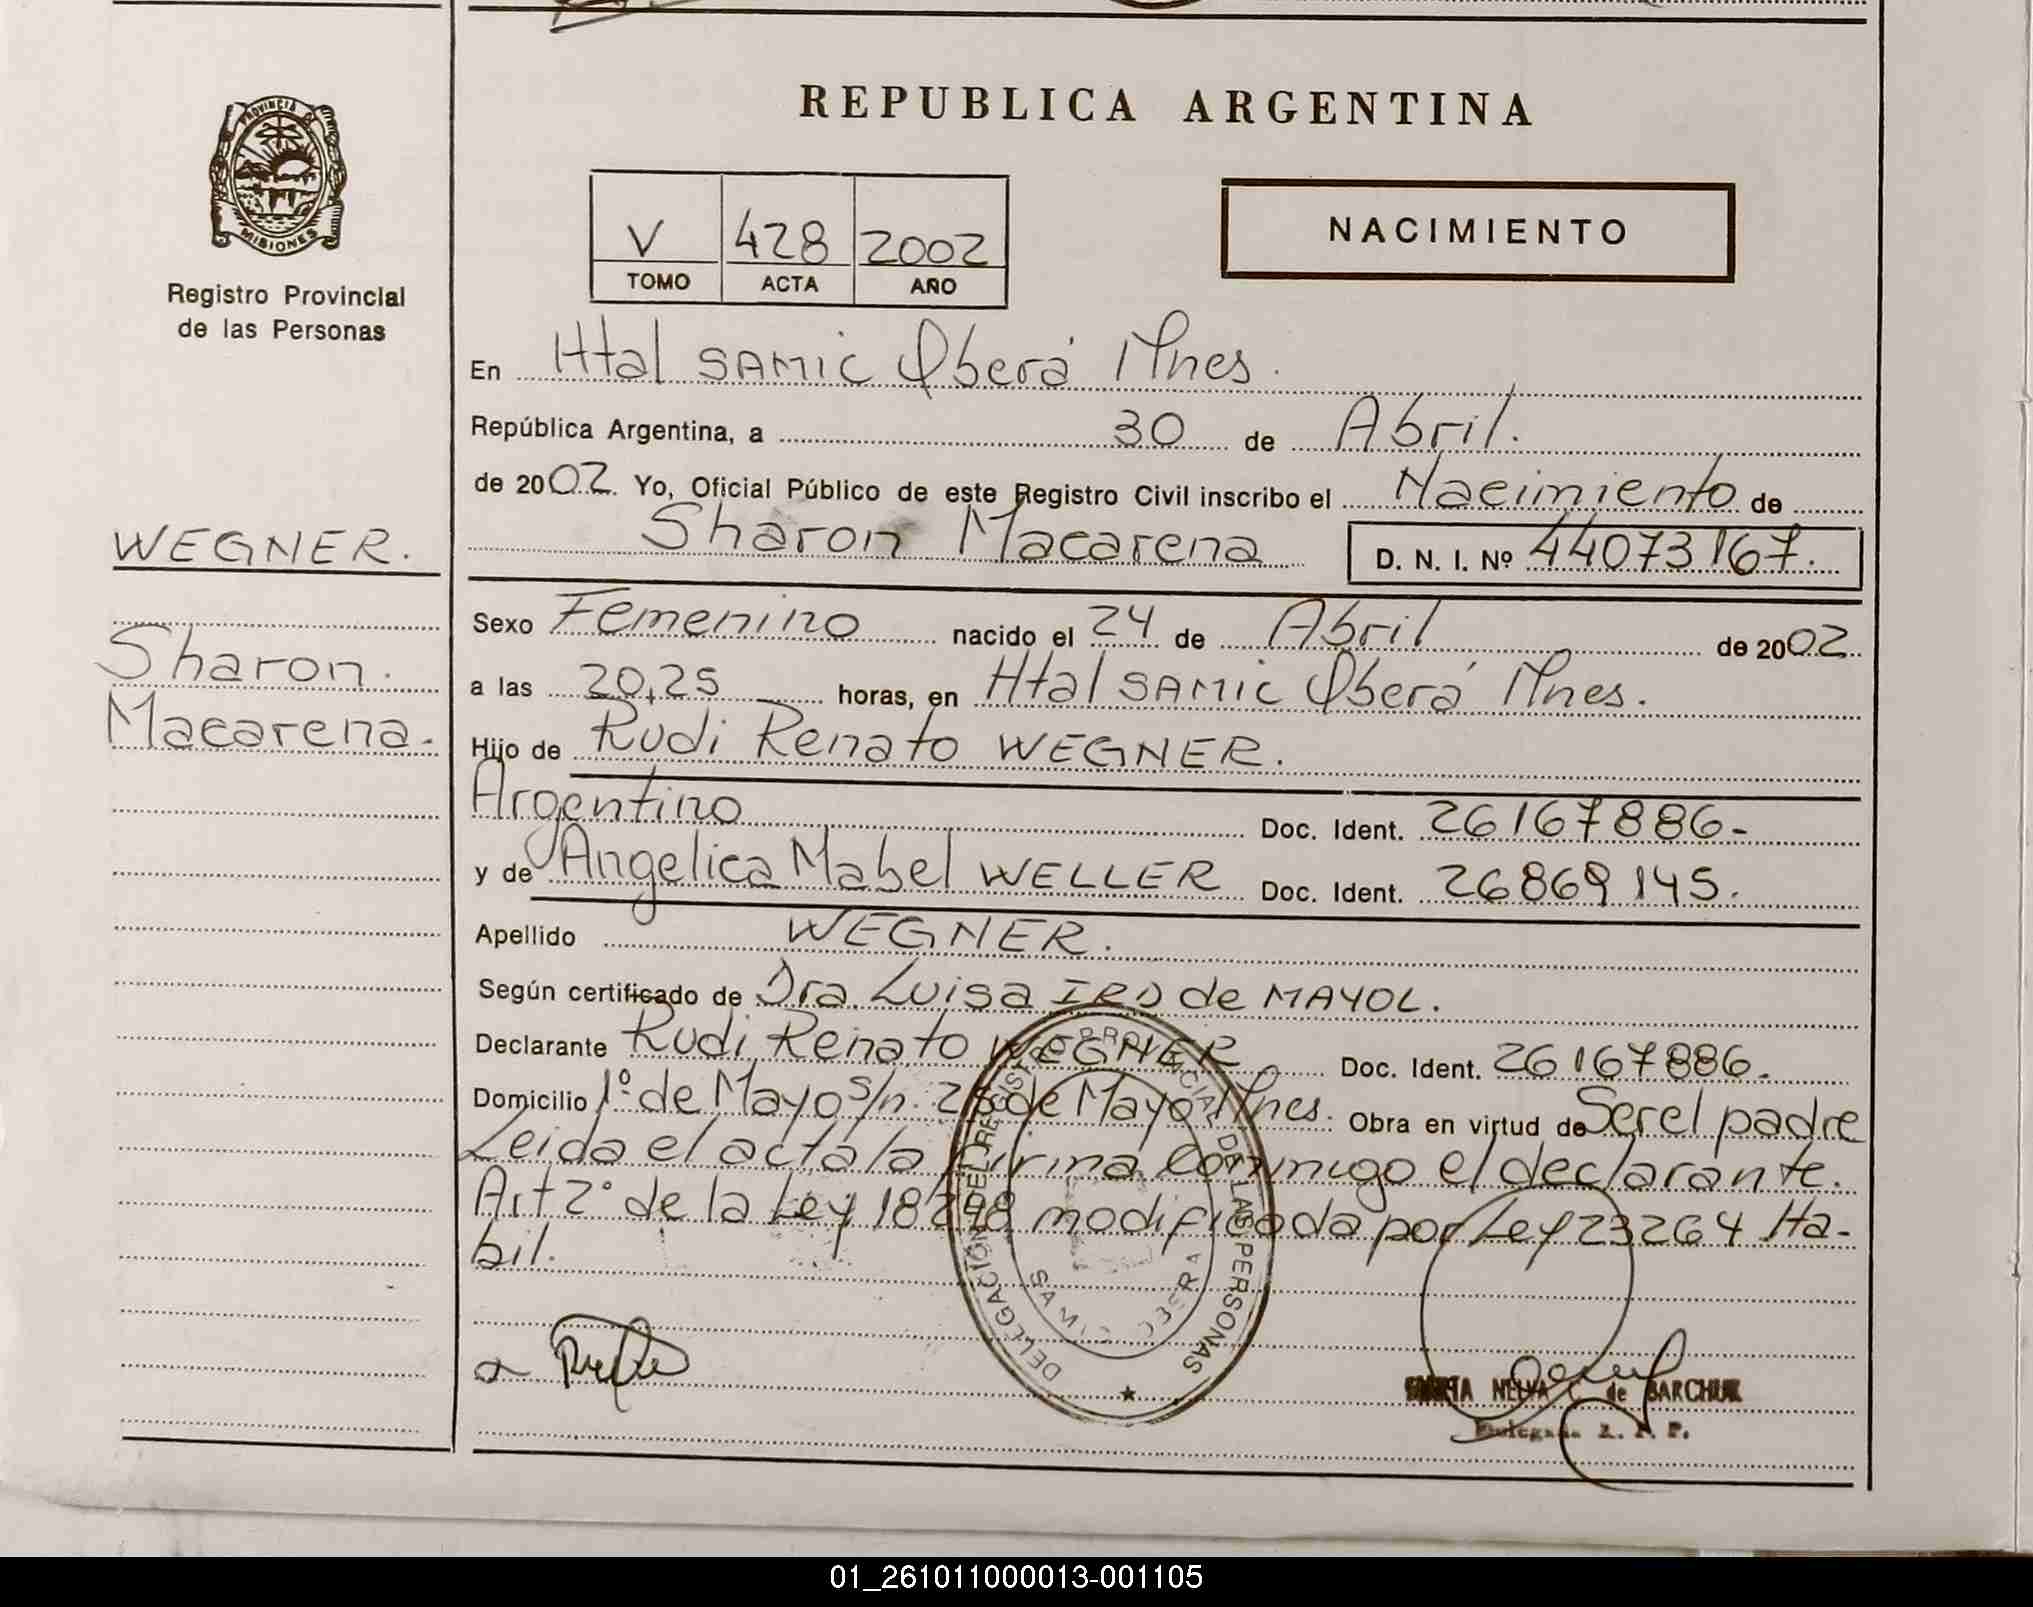 REPUBLICA ARGENTINA
PROVINCIA DE MISIONES
Registro Provincial
de las Personas
V 428 2002
TOMO ACTA AÑO
NACIMIENTO
En Htal SAMIC Oberá Mnes.
República Argentina, a 30 de Abril.
de 2002. Yo, Oficial Público de este Registro Civil inscribo el Nacimiento de
Sharon Macarena D. N. I. Nº 44073167.
WEGNER.
Sharon.
Macarena.
Sexo Femenino nacido el 24 de Abril de 2002.
a las 20,25 horas, en Htal SAMIC Oberá Mnes.
Hijo de Rudi Renato WEGNER.
Argentino Doc. Ident. 26167886.-
y de Angelica Mabel WELLER Doc. Ident. 26869145.
Apellido WEGNER.
Según certificado de Dra. Luisa IRD de MAYOL.
Declarante Rudi Renato WEGNER Doc. Ident. 26167886.
Domicilio 1º de Mayo s/n. 25 de Mayo Mnes. Obra en virtud de Ser el padre
Leida el acta la firma conmigo el declarante.
Art 2º de la Ley 18248 modificada por Ley 23264 Ha-
bil.
DELEGACION DEL REGISTRO PROVINCIAL DE LAS PERSONAS
SAMIC OBERA
NELVA C. de BARCHUK
01_261011000013-001105